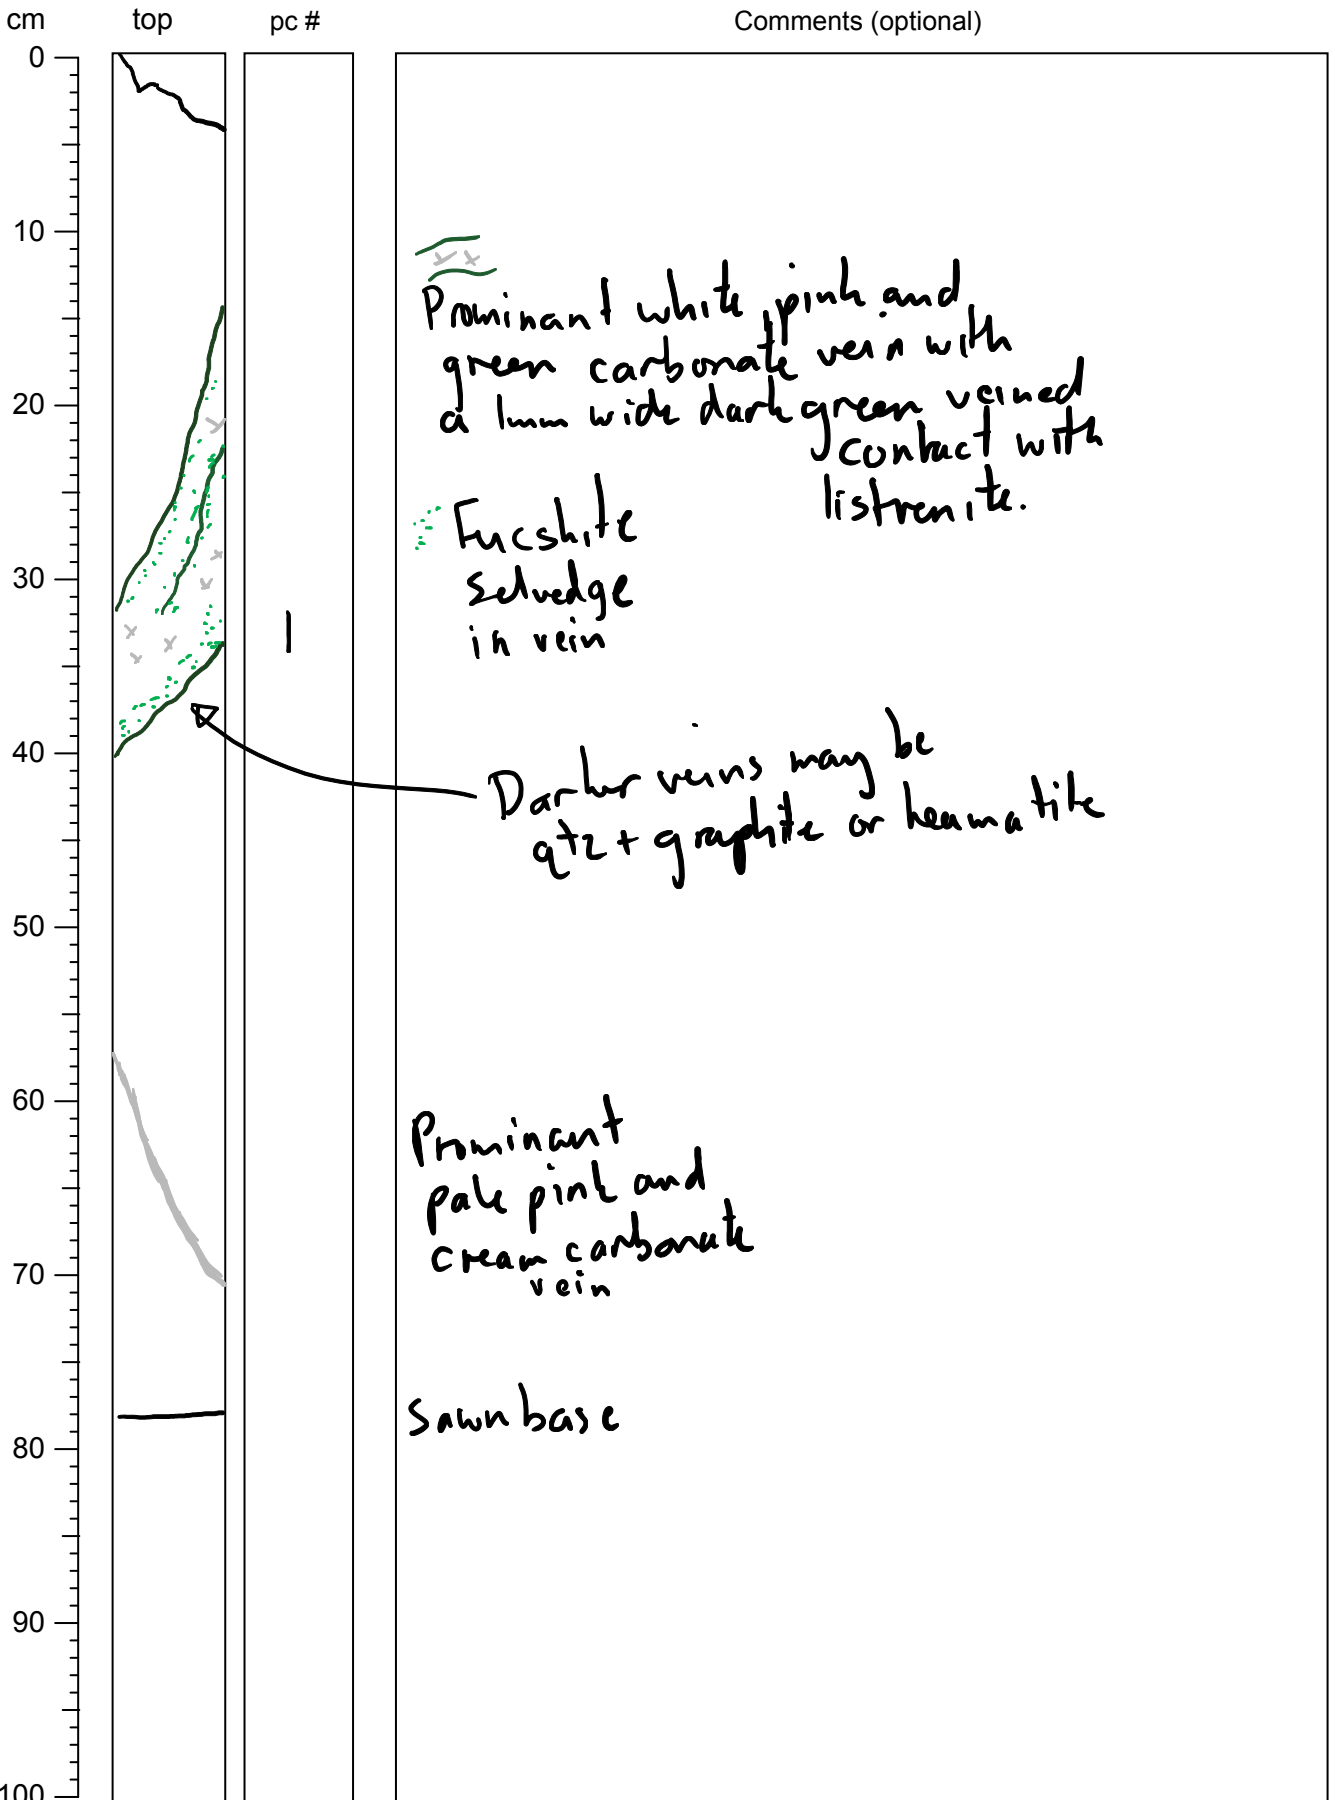 cm top pc # Comments (optional)
0
10
Prominant white pink and
green carbonate vein with
20
a 1mm wide dark green veined
contact with
listrenite.
Fucshite
30
selvedge
in vein
1
40
Darker veins may be
qtz + graphite or heamatite
50
60
Prominant
pale pink and
cream carbonate
70
vein
Sawn base
80
90
100